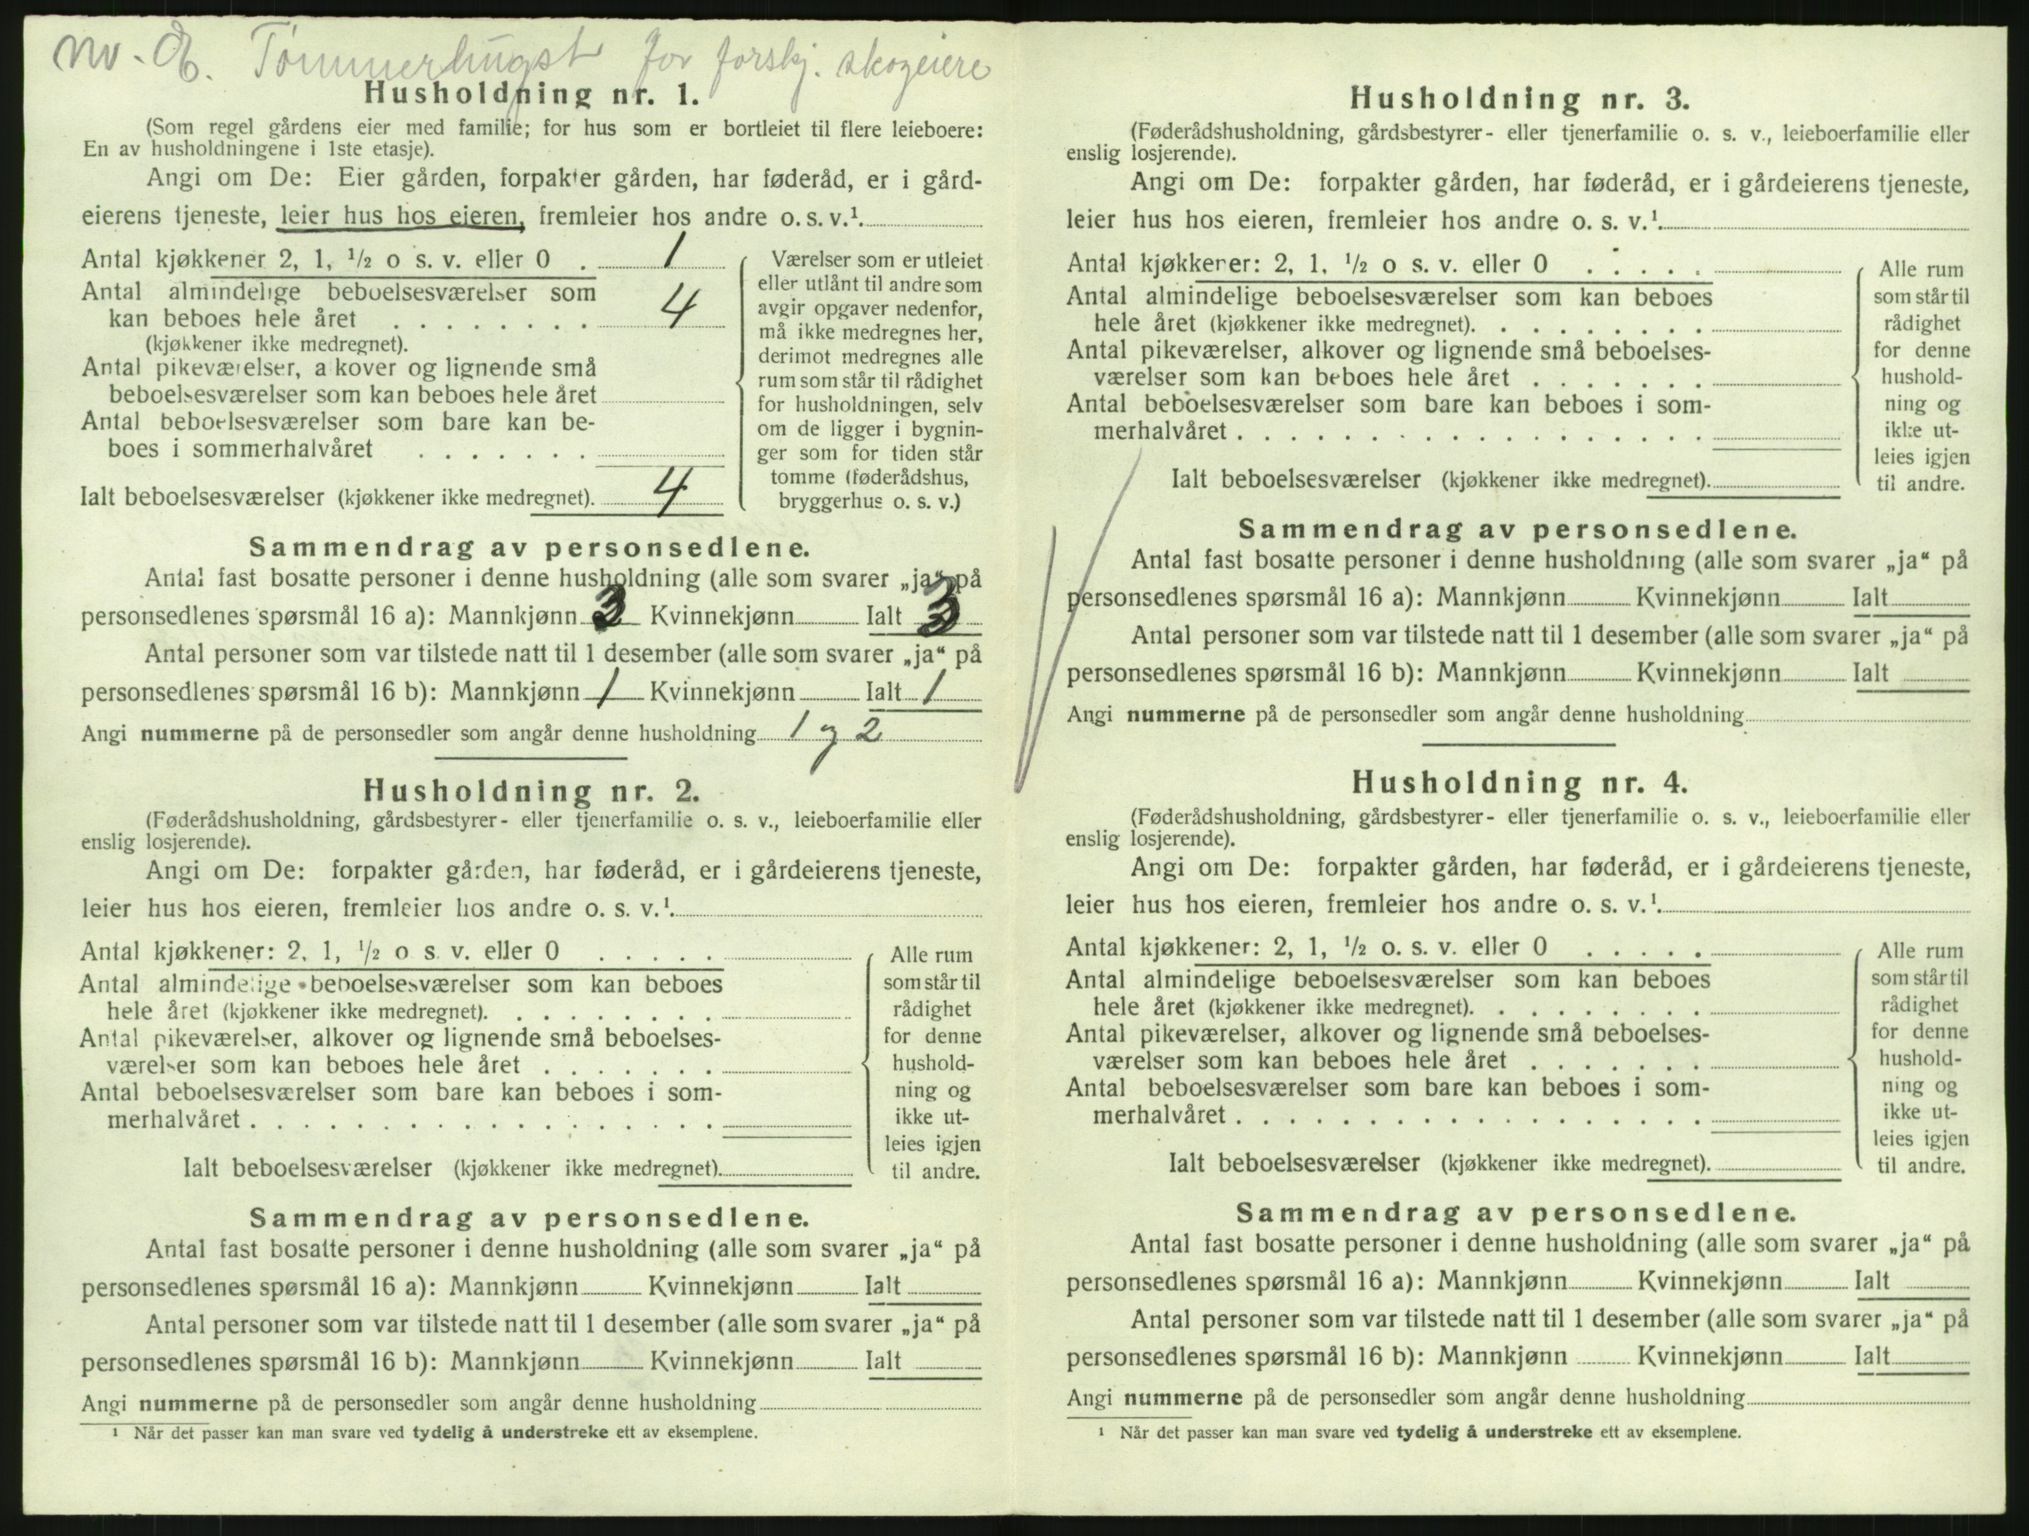 nv. Æ. Tømmerhugst for forskj. skogeiere
Husholdning nr. 1.
(Som regel gårdens eier med familie; for hus som er bortleiet til flere leieboere:
En av husholdningene i 1ste etasje).
Angi om De: Eier gården, forpakter gården, har føderåd, er i gård-
eierens tjeneste, leier hus hos eieren, fremleier hos andre o. s. v.¹.
Antal kjøkkener 2, 1, ¹/₂ o s. v. eller 0 . 1
Antal almindelige beboelsesværelser som
kan beboes hele året . . . . . . . . 4
(kjøkkener ikke medregnet).
Antal pikeværelser, a kover og lignende små
beboelsesværelser som kan beboes hele året
Antal beboelsesværelser som bare kan be-
boes i sommerhalvåret . . . . . . .
Ialt beboelsesværelser (kjøkkener ikke medregnet). 4
Værelser som er utleiet
eller utlånt til andre som
avgir opgaver nedenfor,
må ikke medregnes her,
derimot medregnes alle
rum som står til rådighet
for husholdningen, selv
om de ligger i bygnin-
ger som for tiden står
tomme (føderådshus,
bryggerhus o. s. v.)
Sammendrag av personsedlene.
Antal fast bosatte personer i denne husholdning (alle som svarer „ja“ på
personsedlenes spørsmål 16 a): Mannkjønn 3 Kvinnekjønn Ialt 3
Antal personer som var tilstede natt til 1 desember (alle som svarer „ja“ på
personsedlenes spørsmål 16 b): Mannkjønn 1 Kvinnekjønn Ialt 1
Angi nummerne på de personsedler som angår denne husholdning 1 og 2
Husholdning nr. 2.
(Føderådshusholdning, gårdsbestyrer- eller tjenerfamilie o. s. v., leieboerfamilie eller
enslig losjerende).
Angi om De: forpakter gården, har føderåd, er i gårdeierens tjeneste,
leier hus hos eieren, fremleier hos andre o. s. v.¹.
Antal kjøkkener: 2, 1, ¹/₂ o s. v. eller 0 . . . . .
Antal almindelige beboelsesværelser som kan beboes
hele året (kjøkkener ikke medregnet). . . . . . . . .
Antal pikeværelser, alkover og lignende små beboelses-
værelser som kan beboes hele året . . . . . . .
Antal beboelsesværelser som bare kan beboes i som-
merhalvåret . . . . . . . . . . . . . . . . . .
Ialt beboelsesværelser (kjøkkener ikke medregnet).
Alle rum
som står til
rådighet
for denne
hushold-
ning og
ikke ut-
leies igjen
til andre.
Sammendrag av personsedlene.
Antal fast bosatte personer i denne husholdning (alle som svarer „ja“ på
personsedlenes spørsmål 16 a): Mannkjønn Kvinnekjønn Ialt
Antal personer som var tilstede natt til 1 desember (alle som svarer „ja“ på
personsedlenes spørsmål 16 b): Mannkjønn Kvinnekjønn Ialt
Angi nummerne på de personsedler som angår denne husholdning
¹ Når det passer kan man svare ved tydelig å understreke ett av eksemplene.
Husholdning nr. 3.
(Føderådshusholdning, gårdsbestyrer- eller tjenerfamilie o. s. v., leieboerfamilie eller
enslig losjerende).
Angi om De: forpakter gården, har føderåd, er i gårdeierens tjeneste,
leier hus hos eieren, fremleier hos andre o. s. v.¹.
Antal kjøkkener: 2, 1, ¹/₂ o s. v. eller 0 . . . . .
Antal almindelige beboelsesværelser som kan beboes
hele året (kjøkkener ikke medregnet). . . . . . . . .
Antal pikeværelser, alkover og lignende små beboelses-
værelser som kan beboes hele året . . . . . . .
Antal beboelsesværelser som bare kan beboes i som-
merhalvåret . . . . . . . . . . . . . . . . . .
Ialt beboelsesværelser (kjøkkener ikke medregnet).
Alle rum
som står til
rådighet
for denne
hushold-
ning og
ikke ut-
leies igjen
til andre.
Sammendrag av personsedlene.
Antal fast bosatte personer i denne husholdning (alle som svarer „ja“ på
personsedlenes spørsmål 16 a): Mannkjønn Kvinnekjønn Ialt
Antal personer som var tilstede natt til 1 desember (alle som svarer „ja“ på
personsedlenes spørsmål 16 b): Mannkjønn Kvinnekjønn Ialt
Angi nummerne på de personsedler som angår denne husholdning
Husholdning nr. 4.
(Føderådshusholdning, gårdsbestyrer- eller tjenerfamilie o. s. v., leieboerfamilie eller
enslig losjerende).
Angi om De: forpakter gården, har føderåd, er i gårdeierens tjeneste,
leier hus hos eieren, fremleier hos andre o. s. v.¹.
Antal kjøkkener: 2, 1, ¹/₂ o. s. v. eller 0 . . . . .
Antal almindelige beboelsesværelser som kan beboes
hele året (kjøkkener ikke medregnet). . . . . . . . .
Antal pikeværelser, alkover og lignende små beboelses-
værelser som kan beboes hele året . . . . . . .
Antal beboelsesværelser som bare kan beboes i som-
merhalvåret . . . . . . . . . . . . . . . . . .
Ialt beboelsesværelser (kjøkkener ikke medregnet).
Alle rum
som står til
rådighet
for denne
hushold-
ning og
ikke ut-
leies igjen
til andre.
Sammendrag av personsedlene.
Antal fast bosatte personer i denne husholdning (alle som svarer „ja“ på
personsedlenes spørsmål 16 a): Mannkjønn Kvinnekjønn Ialt
Antal personer som var tilstede natt til 1 desember (alle som svarer „ja“ på
personsedlenes spørsmål 16 b): Mannkjønn Kvinnekjønn Ialt
Angi nummerne på de personsedler som angår denne husholdning
¹ Når det passer kan man svare ved tydelig å understreke ett av eksemplene.